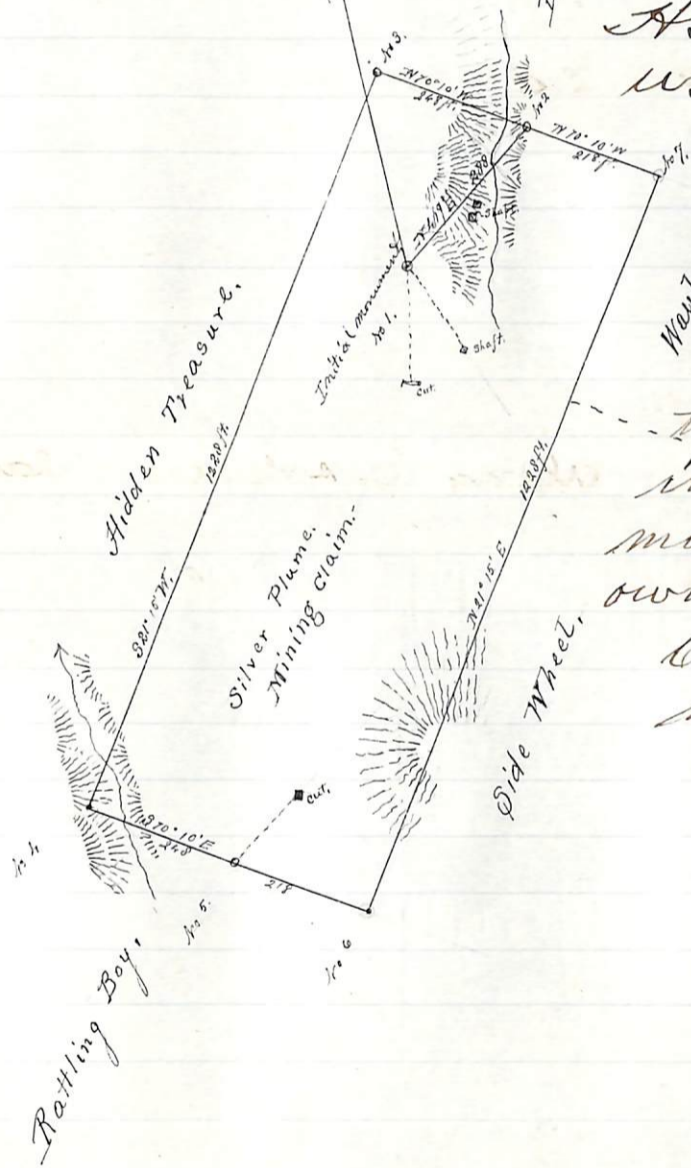 No 3.
N 70° 10' W
248 ft.
No 2
N 70° 10' W
218 ft.
No 7.
288
Shaft.
Initial monument
No 1.
Shaft.
Cut.
Hidden Treasure.
1228 ft.
S 21° 15' W.
Silver Plume.
Mining Claim.
1228 ft.
N 21° 15' E
Side Wheel.
Cut.
S 70° 10' E
248
218
No 4
No 5.
No 6
Rattling Boy.